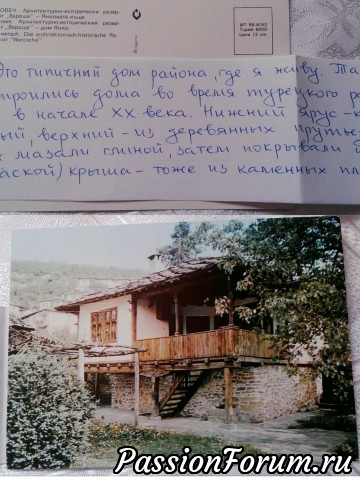 ОВЕЧ. Архитектурно-исторически резер-
"Вароша" — Янковата къща
Архитектурно-исторический резер-
"Вароша" — дом Янко
Das architektonisch-historische Re-
"Warosche"
България
МТ 99-4/40
Тираж 6000
Цена 12 cm.
Это типичный дом района, где я живу. Та
троились дома во время турецкого ра
в начале XX века. Нижний ярус - к
ый, верхний - из деревянных прутье
х мазали глиной, затем покрывали б
аской) крыша - тоже из каменных пл
PassionForum.ru